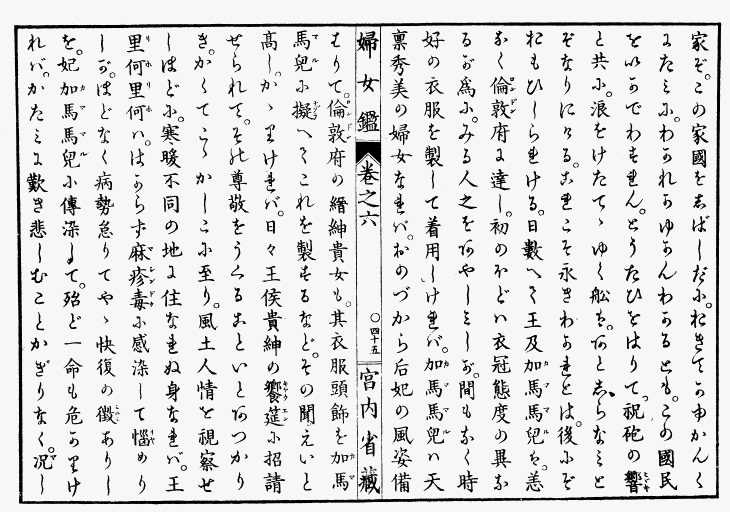 家ぞ。この家國を志ばしだに。おきてかゆかんく
にたみに。わかれかゆかんわかるとも。この國民
をいかでわすれん。とうたひをはりて。祝砲の響
と共に。浪をけたてゝゆく船を。あと志らなみと
ぞなりにける。これこそ永きわかれとは。後にぞ
おもひしられける。日數へて王及加馬馬兒を。恙
なく倫敦府に達し。初のほどハ衣冠態度の異な
るが爲に。みる人之をあやしミしが。間もなく時
好の衣服を製して着用しけれバ。加馬馬兒ハ天
稟秀美の婦女なれバ。おのづから后妃の風姿備
婦女鑑 卷之六 〇四十五 宮内省藏
はりて。倫敦府の縉紳貴女も。其衣服頭飾を加馬
馬兒に擬へてこれを製するなど。その聞えいと
高し。かゝりけれバ。日々王侯貴紳の饗筵に招請
せられて。その尊敬をうくることいとあつかり
き。かくてこゝかしこに至り。風土人情を視察せ
しほどに。寒暖不同の地に住なれぬ身なれバ。王
里何里何ハ。はからず麻疹毒に感染して惱めり
しが。ほどなく病勢怠りてやゝ快復の徴ありし
を。妃加馬馬兒に傳染して。殆ど一命も危かりけ
れバ。かたミに歎き悲しむことかぎりなく。况し